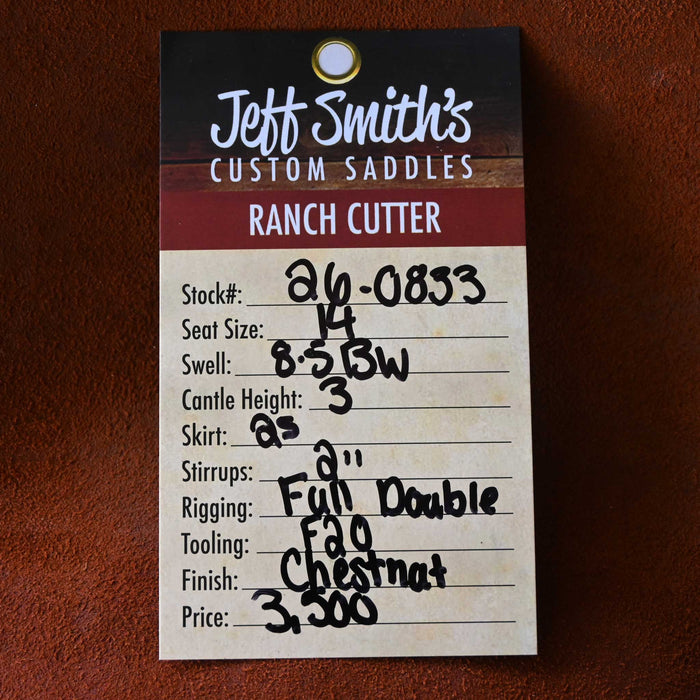 Jeff Smith's
CUSTOM SADDLES
RANCH CUTTER
Stock#: 26-0833
Seat Size: 14
Swell: 8.5 BW
Cantle Height: 3
Skirt: 2s
Stirrups: 2"
Rigging: Full Double
Tooling: F20
Finish: Chestnat
Price: 3,500